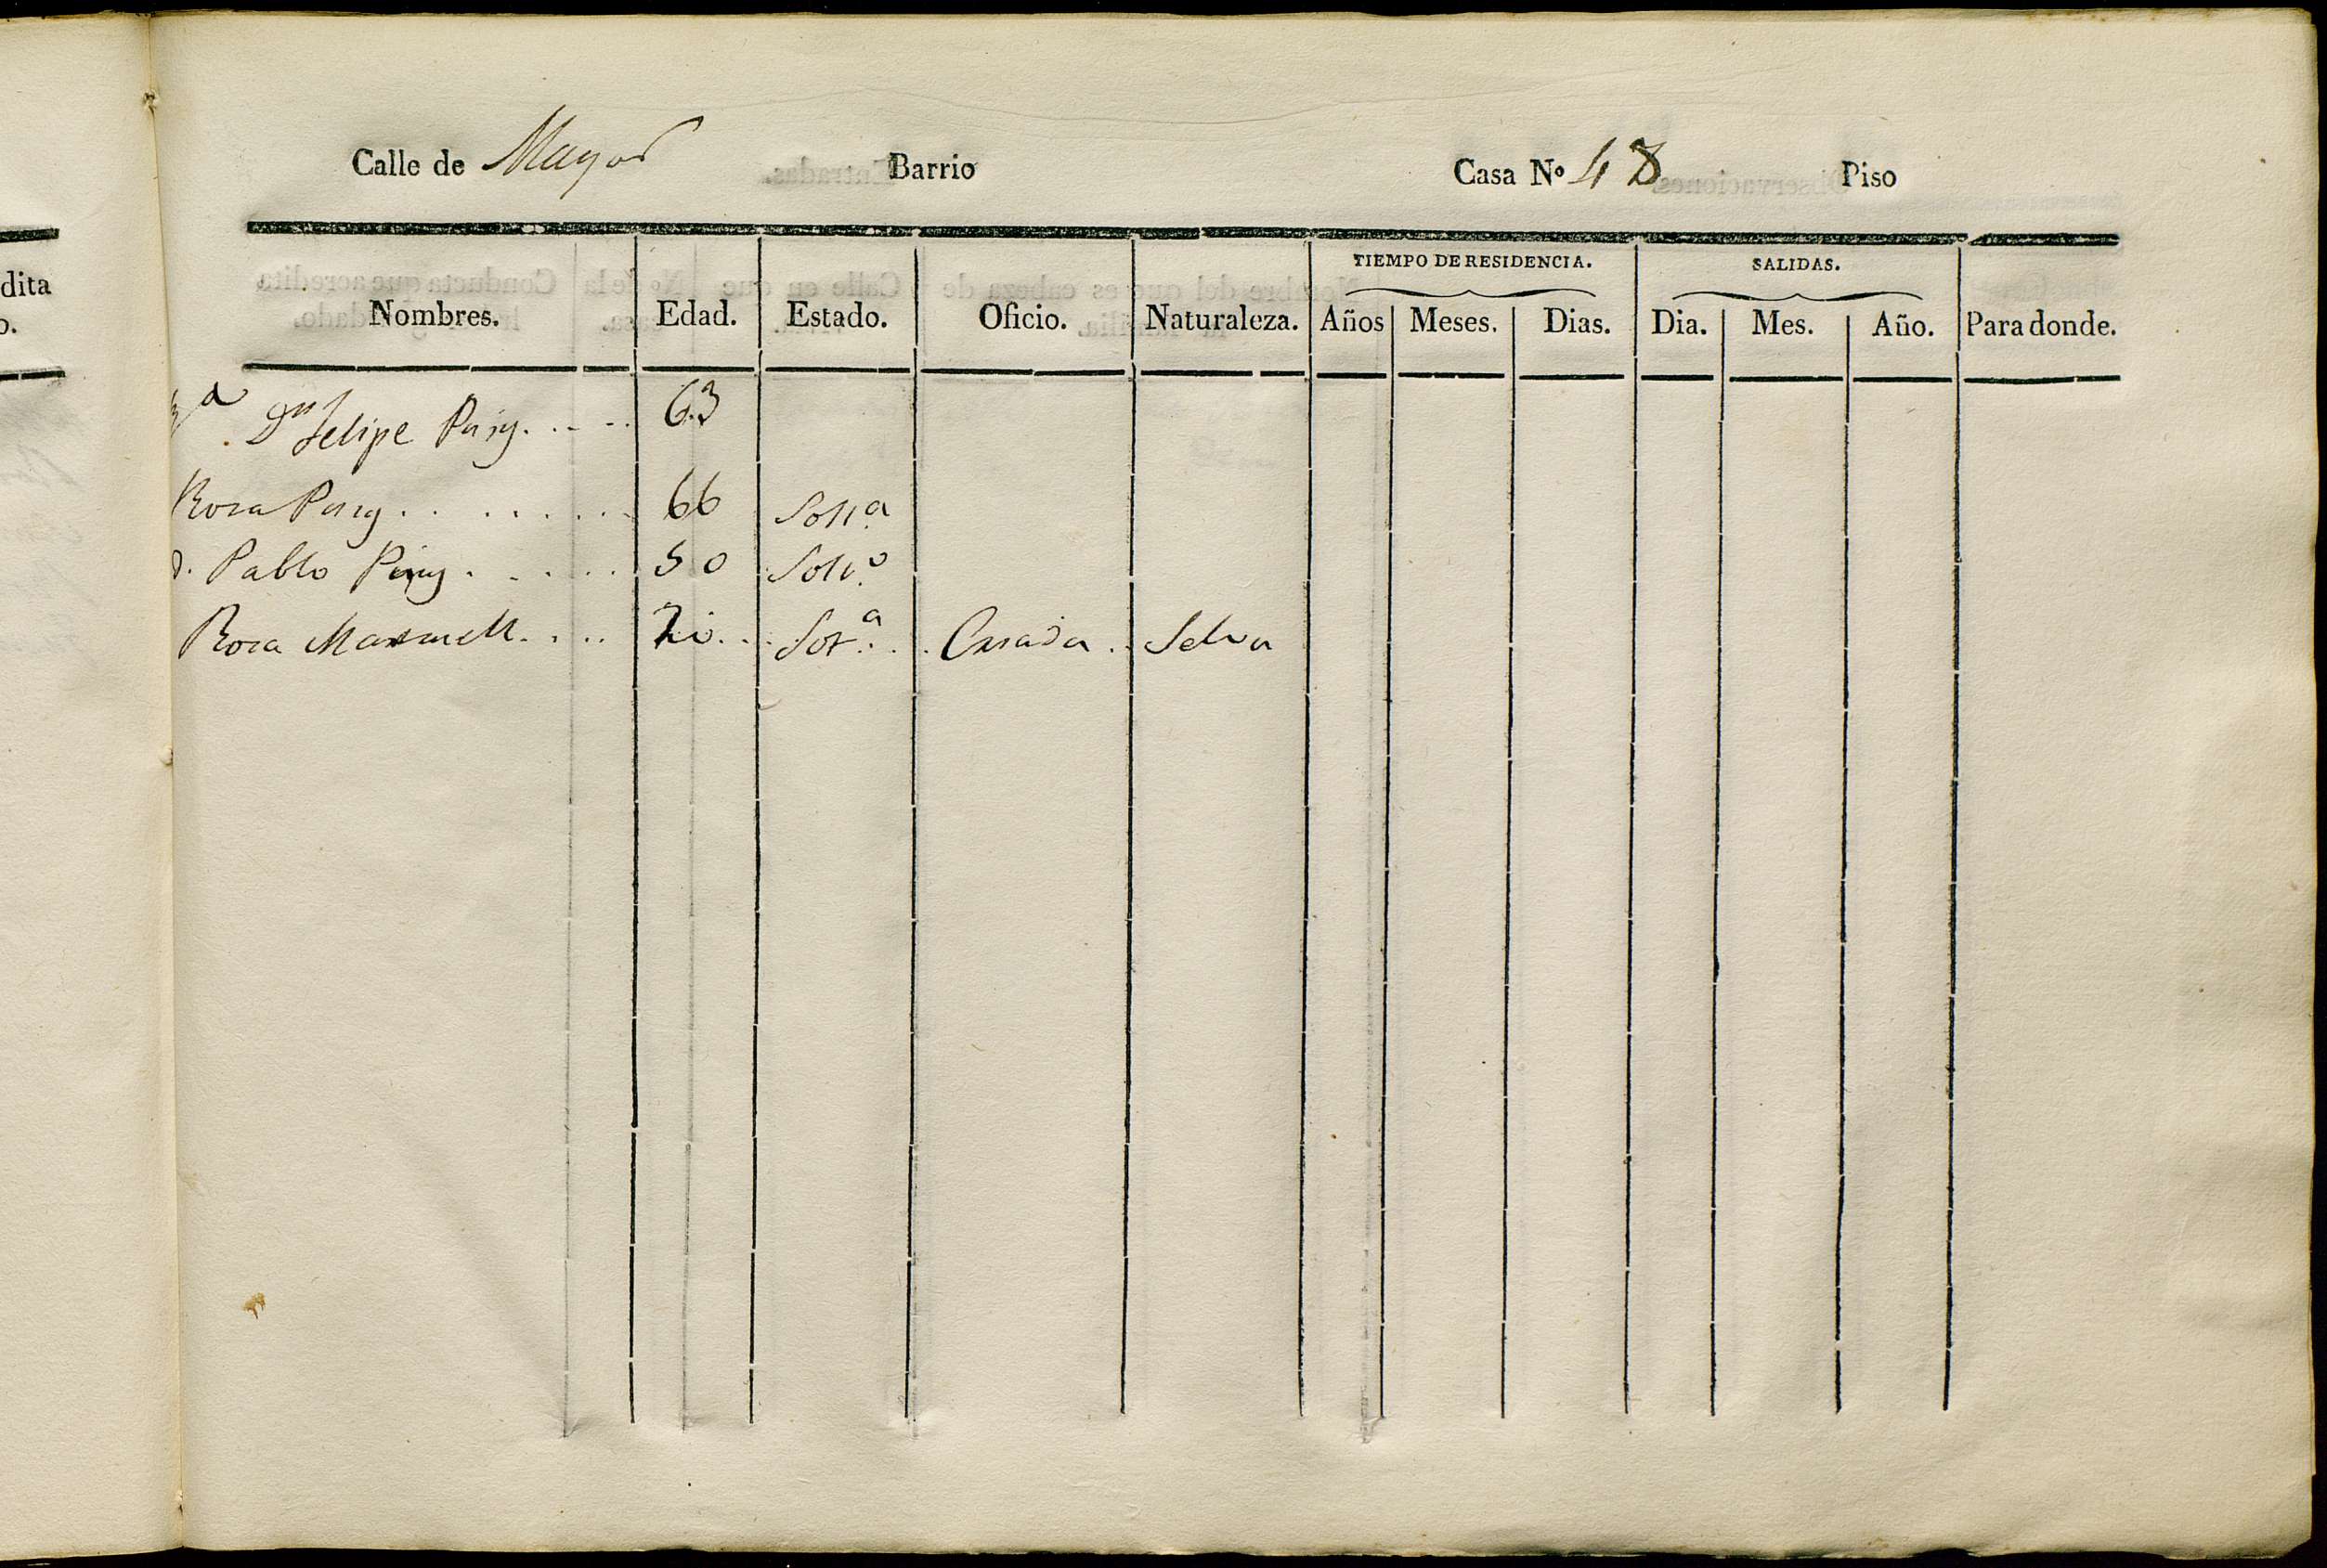 dita
o.
Calle de Mayor Barrio Casa Nº 48 Piso
TIEMPO DE RESIDENCIA. SALIDAS.
Nombres. Edad. Estado. Oficio. Naturaleza. Años Meses. Dias. Dia. Mes. Año. Para donde.
Dn Felipe Puig..... 63
Rosa Puig........ 66 Solta
Pablo Puig...... 50 Solto
Rosa .... Sota... Criada.. Selva